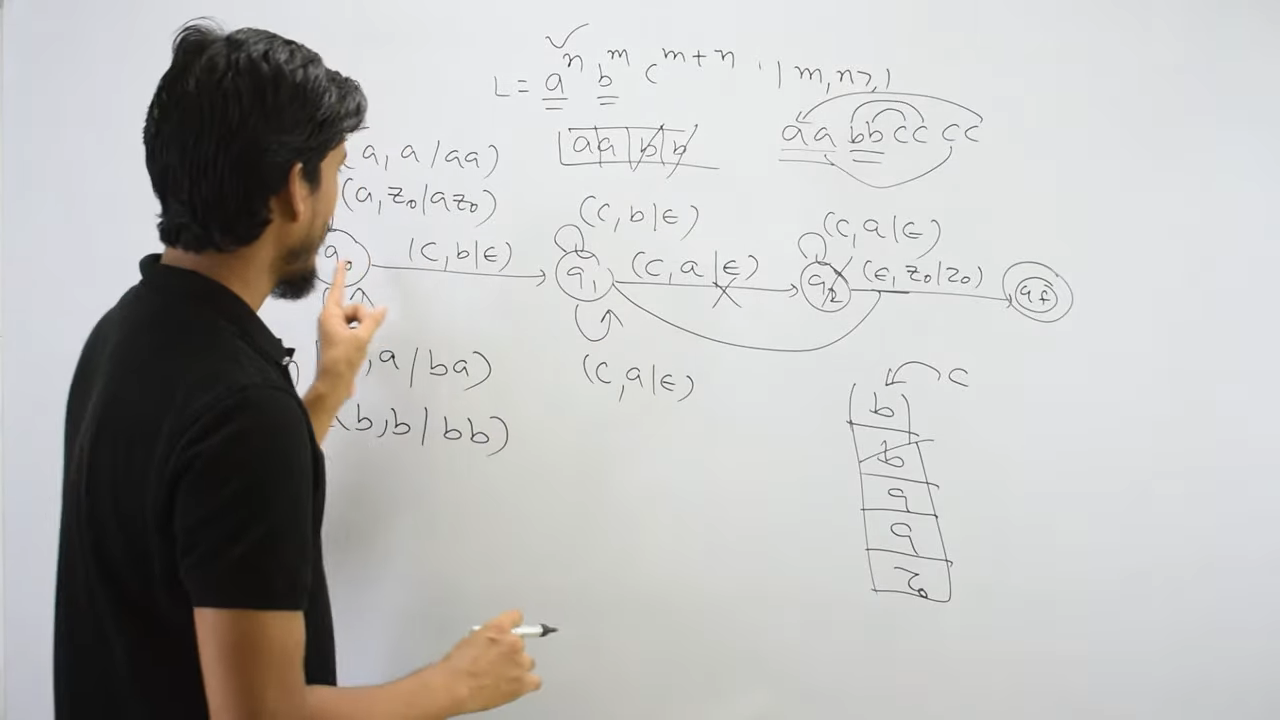 L = a^n b^m c^{m+n} | m,n ≥ 1
a a b b
a a b b c c c c
(a, a / aa)
(a, z₀ / az₀)
q₀
(c, b | ε)
(c, b | ε)
q₁
(c, a | ε)
(c, a | ε)
q₂
(ε, z₀ | z₀)
qf
, a / ba)
(c, a | ε)
(b, b | bb)
c
b
b
a
a
z₀